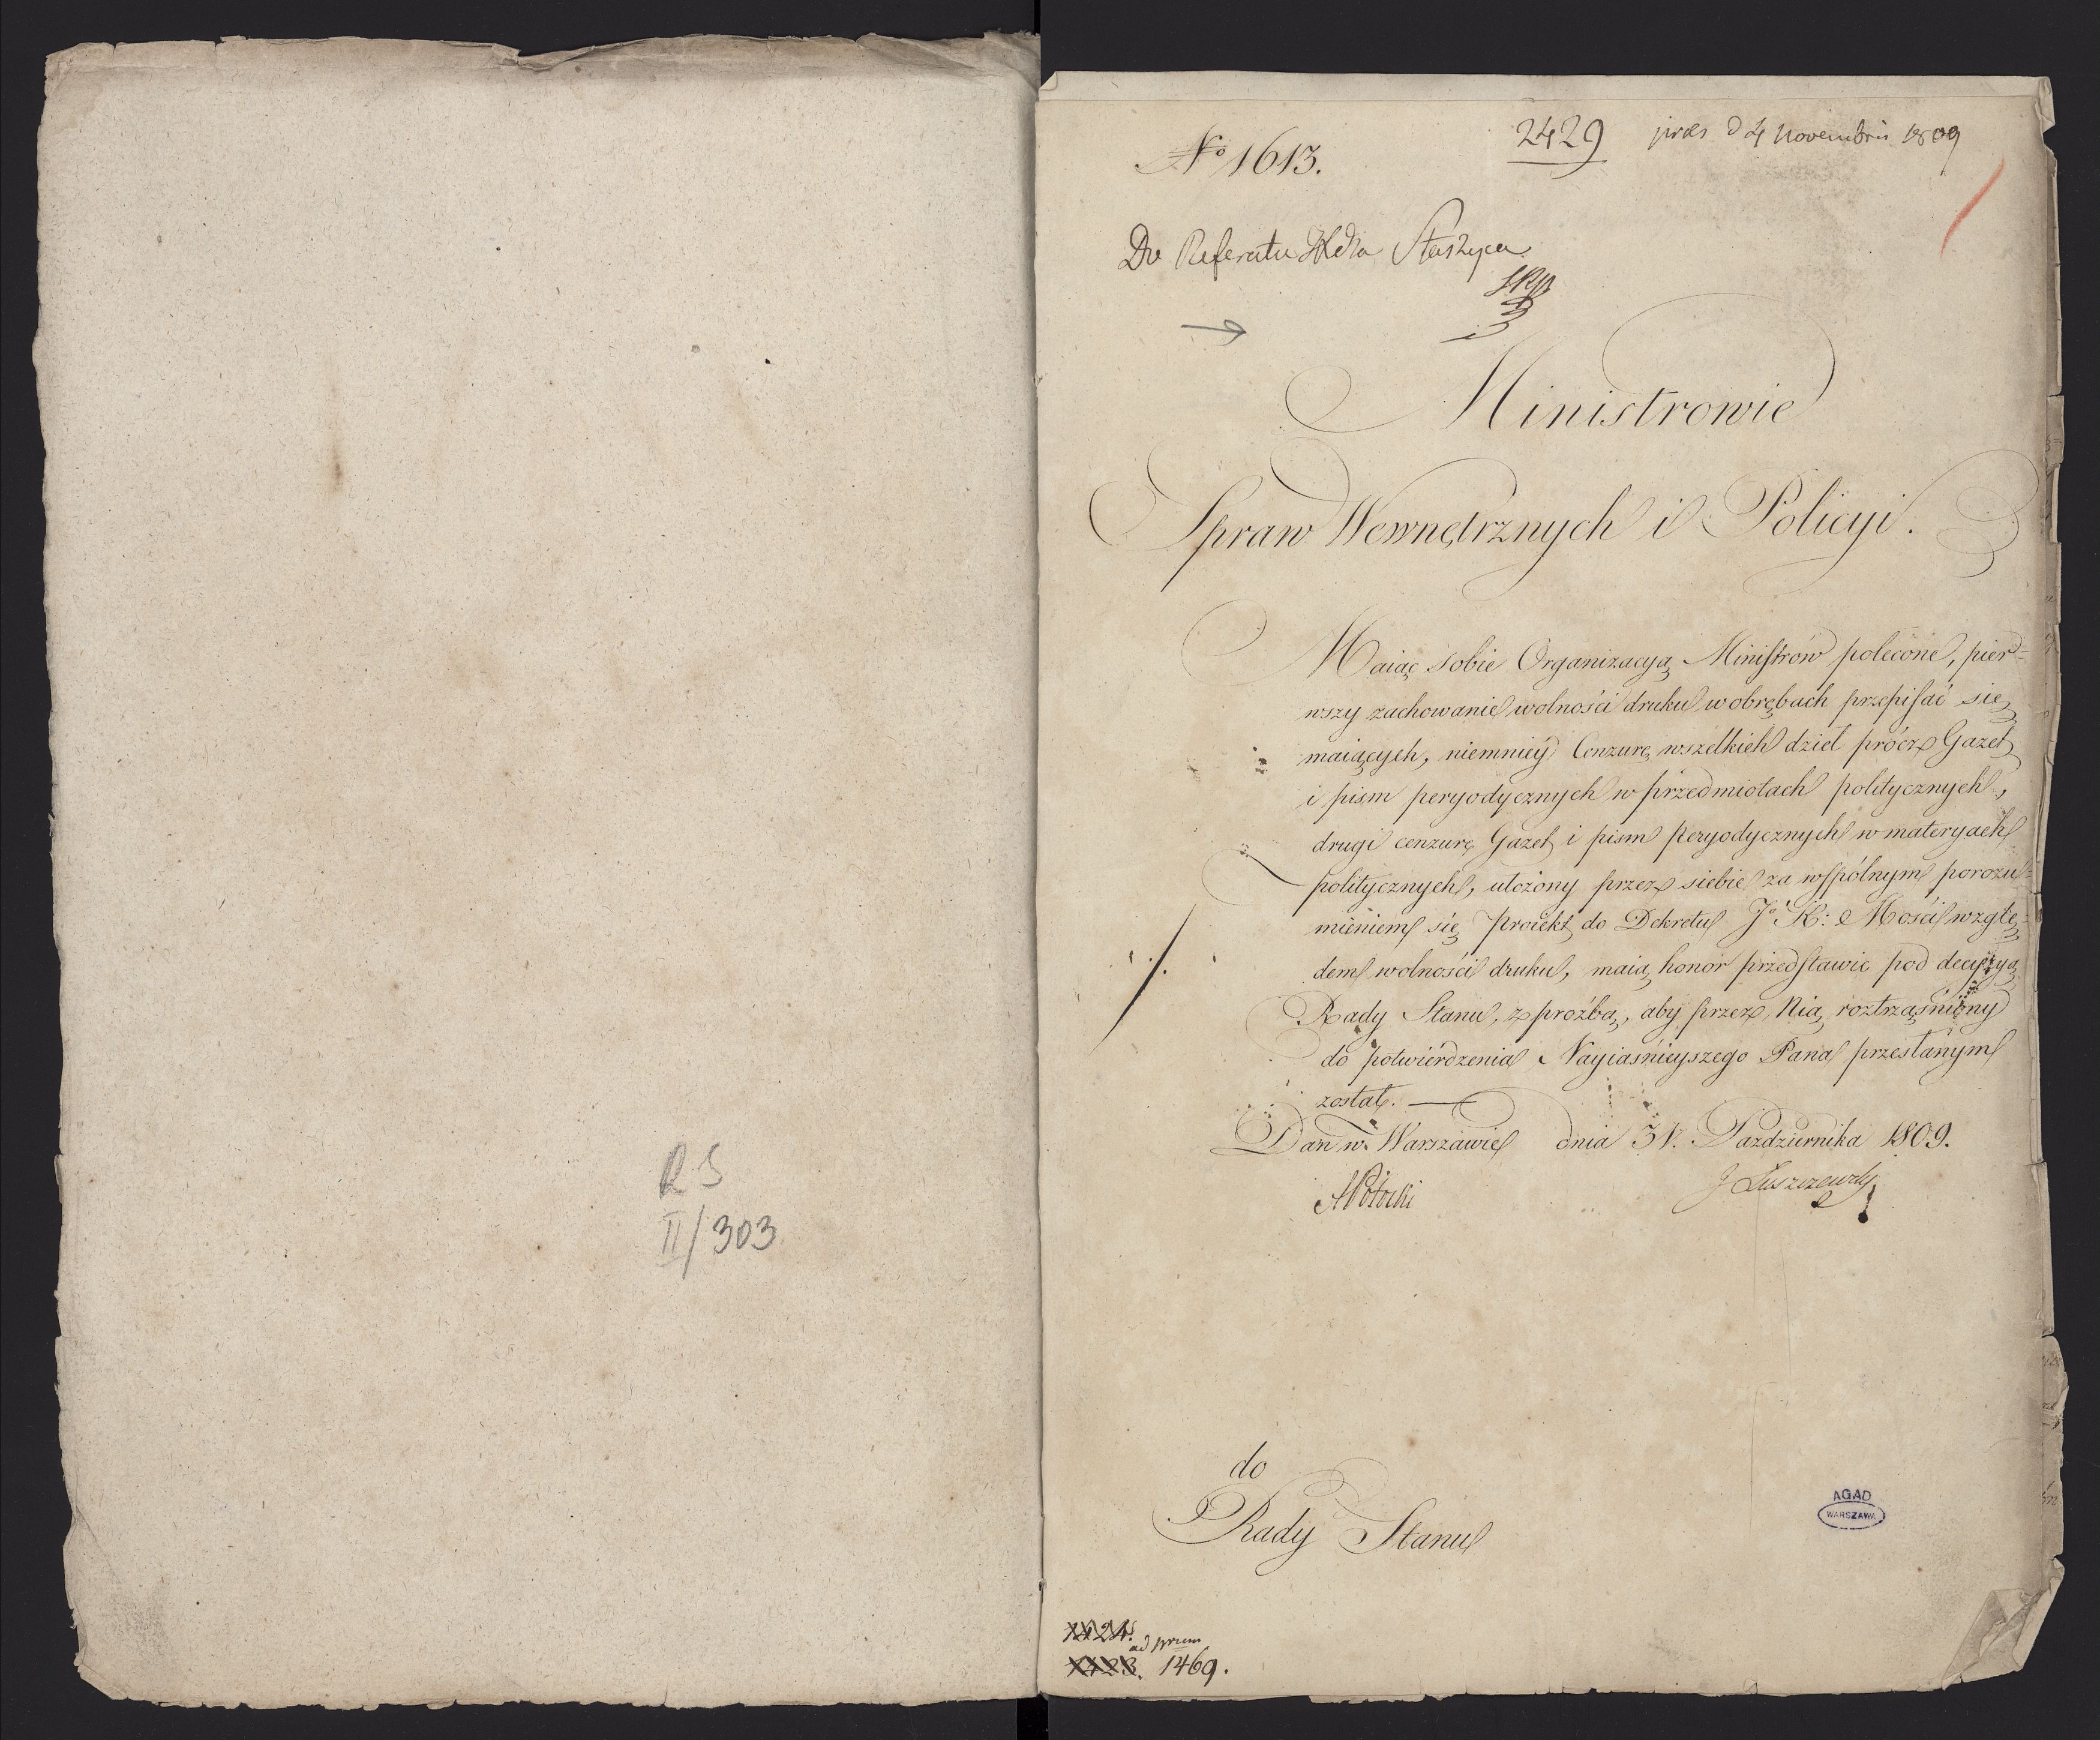 R S
II/303
No 1613.
2429
præs d 4 Novembris 1809
Do Referatu Staszyca
Ministrowie
Spraw Wewnętrznych i Policyi.
Maiąc sobie Organizacyą Ministrów polecone, pier=
wszy zachowanie wolności druku w obrębach przepisać się
maiących, niemniéy Cenzurę wszelkich dzieł prócz Gazet
i pism peryodycznych w przedmiotach politycznych,
drugi cenzurę Gazet i pism peryodycznych w materyach
politycznych, ułożony przez siebie za wspólnym porozu=
mieniem się Proiekt do Dekretu Jo K: Mości wzglę=
dem wolności druku, maią honor przedstawić pod decyzyą
Rady Stanu, z prożbą, aby przez Nią roztrząśniony
do potwierdzenia Nayiaśnieyszego Pana przesłanym
został. —
Dan w Warszawie dnia 31. Pazdziernika 1809.
APotocki
J Łuszczewski
do
Rady Stanu
AGAD
WARSZAWA
ad prem
1469.